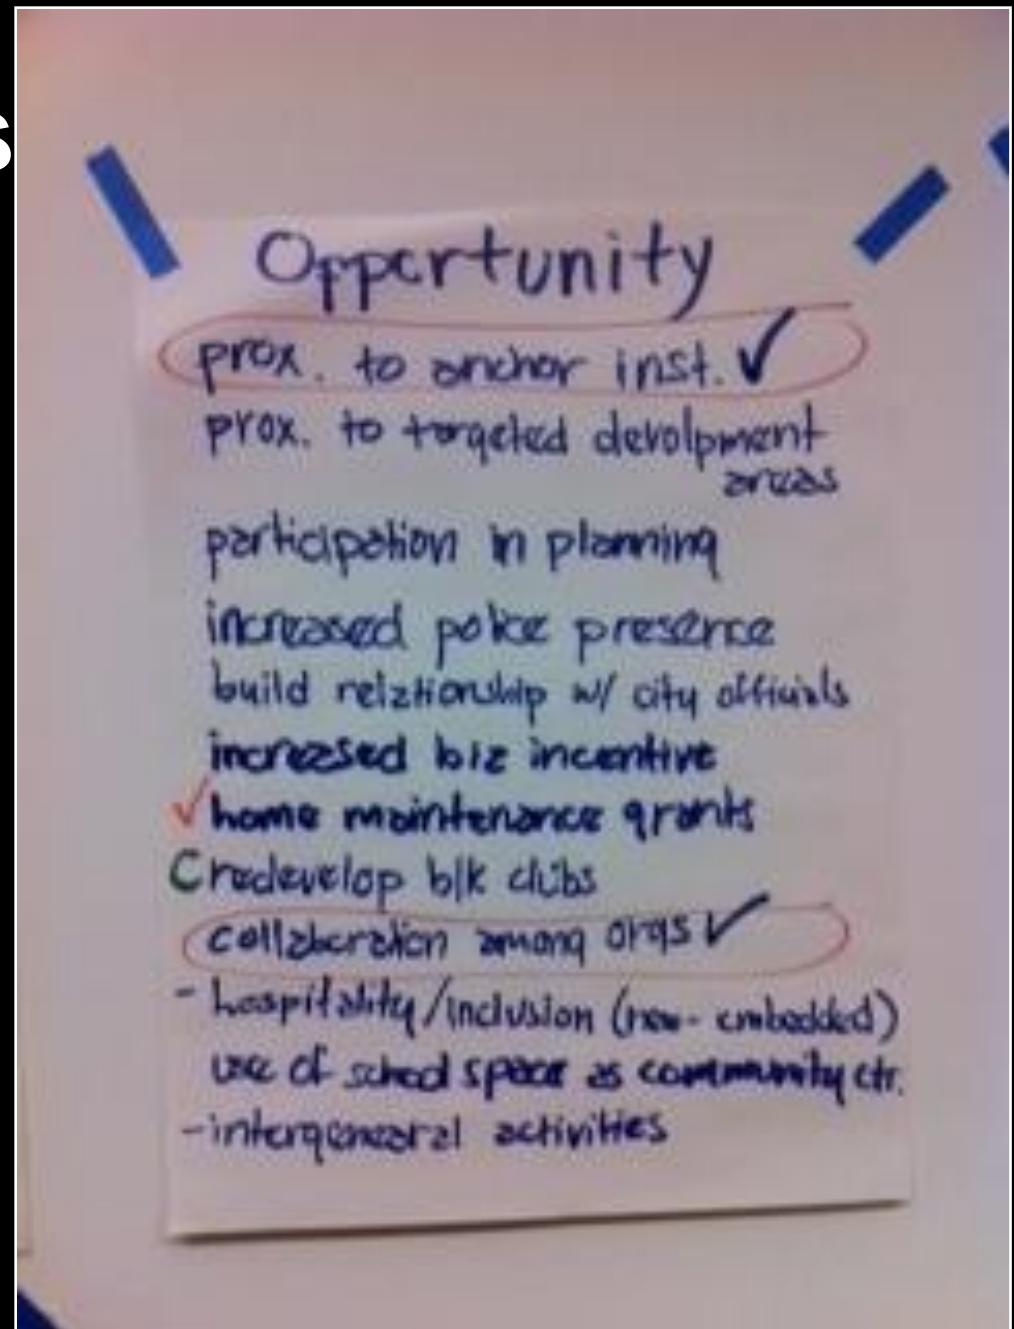 s
Opportunity
prox. to anchor inst. ✓
prox. to targeted devolpment
areas
participation in planning
increased police presence
build relationship w/ city officials
increased biz incentive
✓ home maintenance grants
C redevelop blk clubs
collaboration among orgs ✓
- hospitality/inclusion (new-embedded)
use of school space as community ctr.
- intergenearal activities